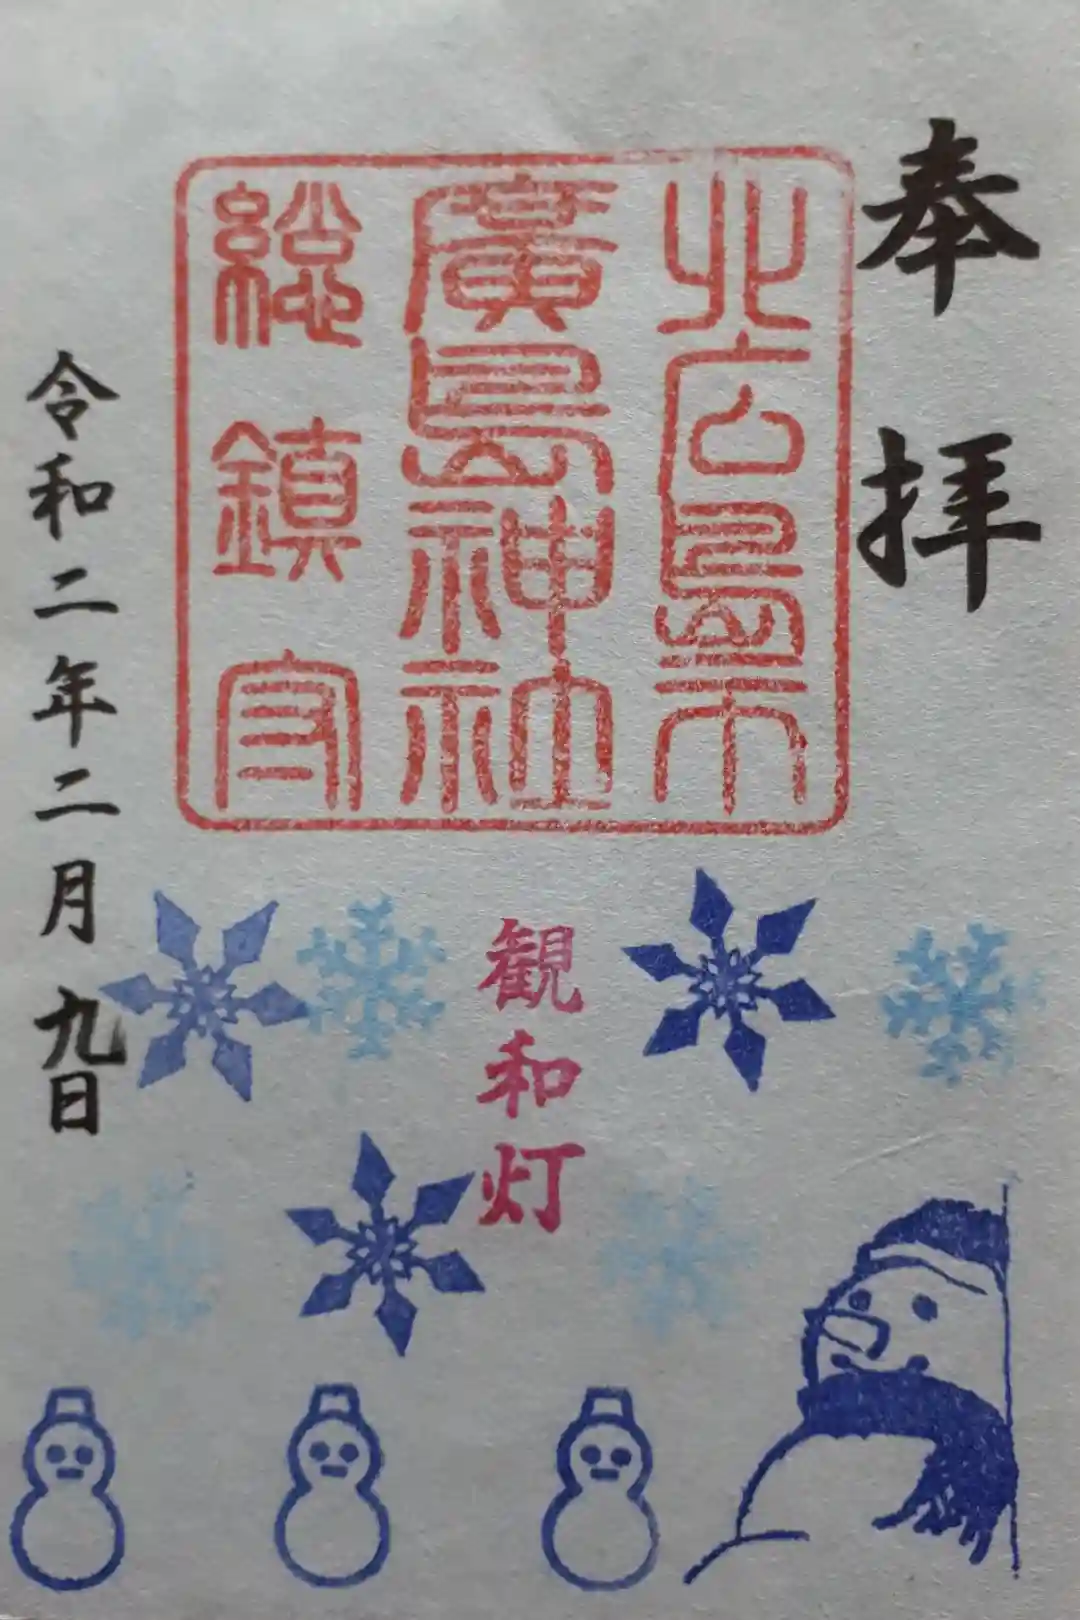 奉拝
北広島市
廣島神社
総鎮守
観和灯
令和二年二月九日